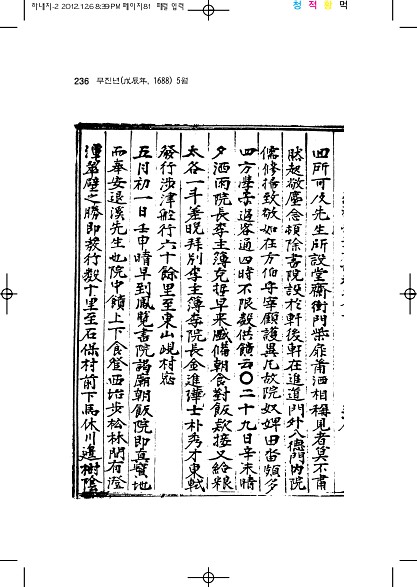 하내지-2 2012.12.6 8:39 PM 페이지81
청 적 황 먹
236 무진년(戊辰年, 1688) 5월
四所可久先生所設堂齋衝門柴扉蕭洒相稱見者莫不肅
然起敬塵念頓除書院設於軒後軒在進道門外入德門內院
儒修掃致敬如在方伯守宰顧護異凡故院奴婢田畓頗多
四方學者過客通四時不限數供饋云○二十九日辛未晴
夕洒雨院長李主簿克哲早來盛備朝食對飯款接又給粮
太各一斗差晚拜別李主簿李院長金進
士朴秀才東軾
發行涉津艇行六十餘里至東山峴村宿
五月初一日壬申晴早到鳳覽書院謁廟朝飯院即眞寶地
而奉安退溪先生也院中饋上下食登西臺步松林間有澄
潭翠壁之勝即發行數十里至石保村前下馬休川邊樹陰